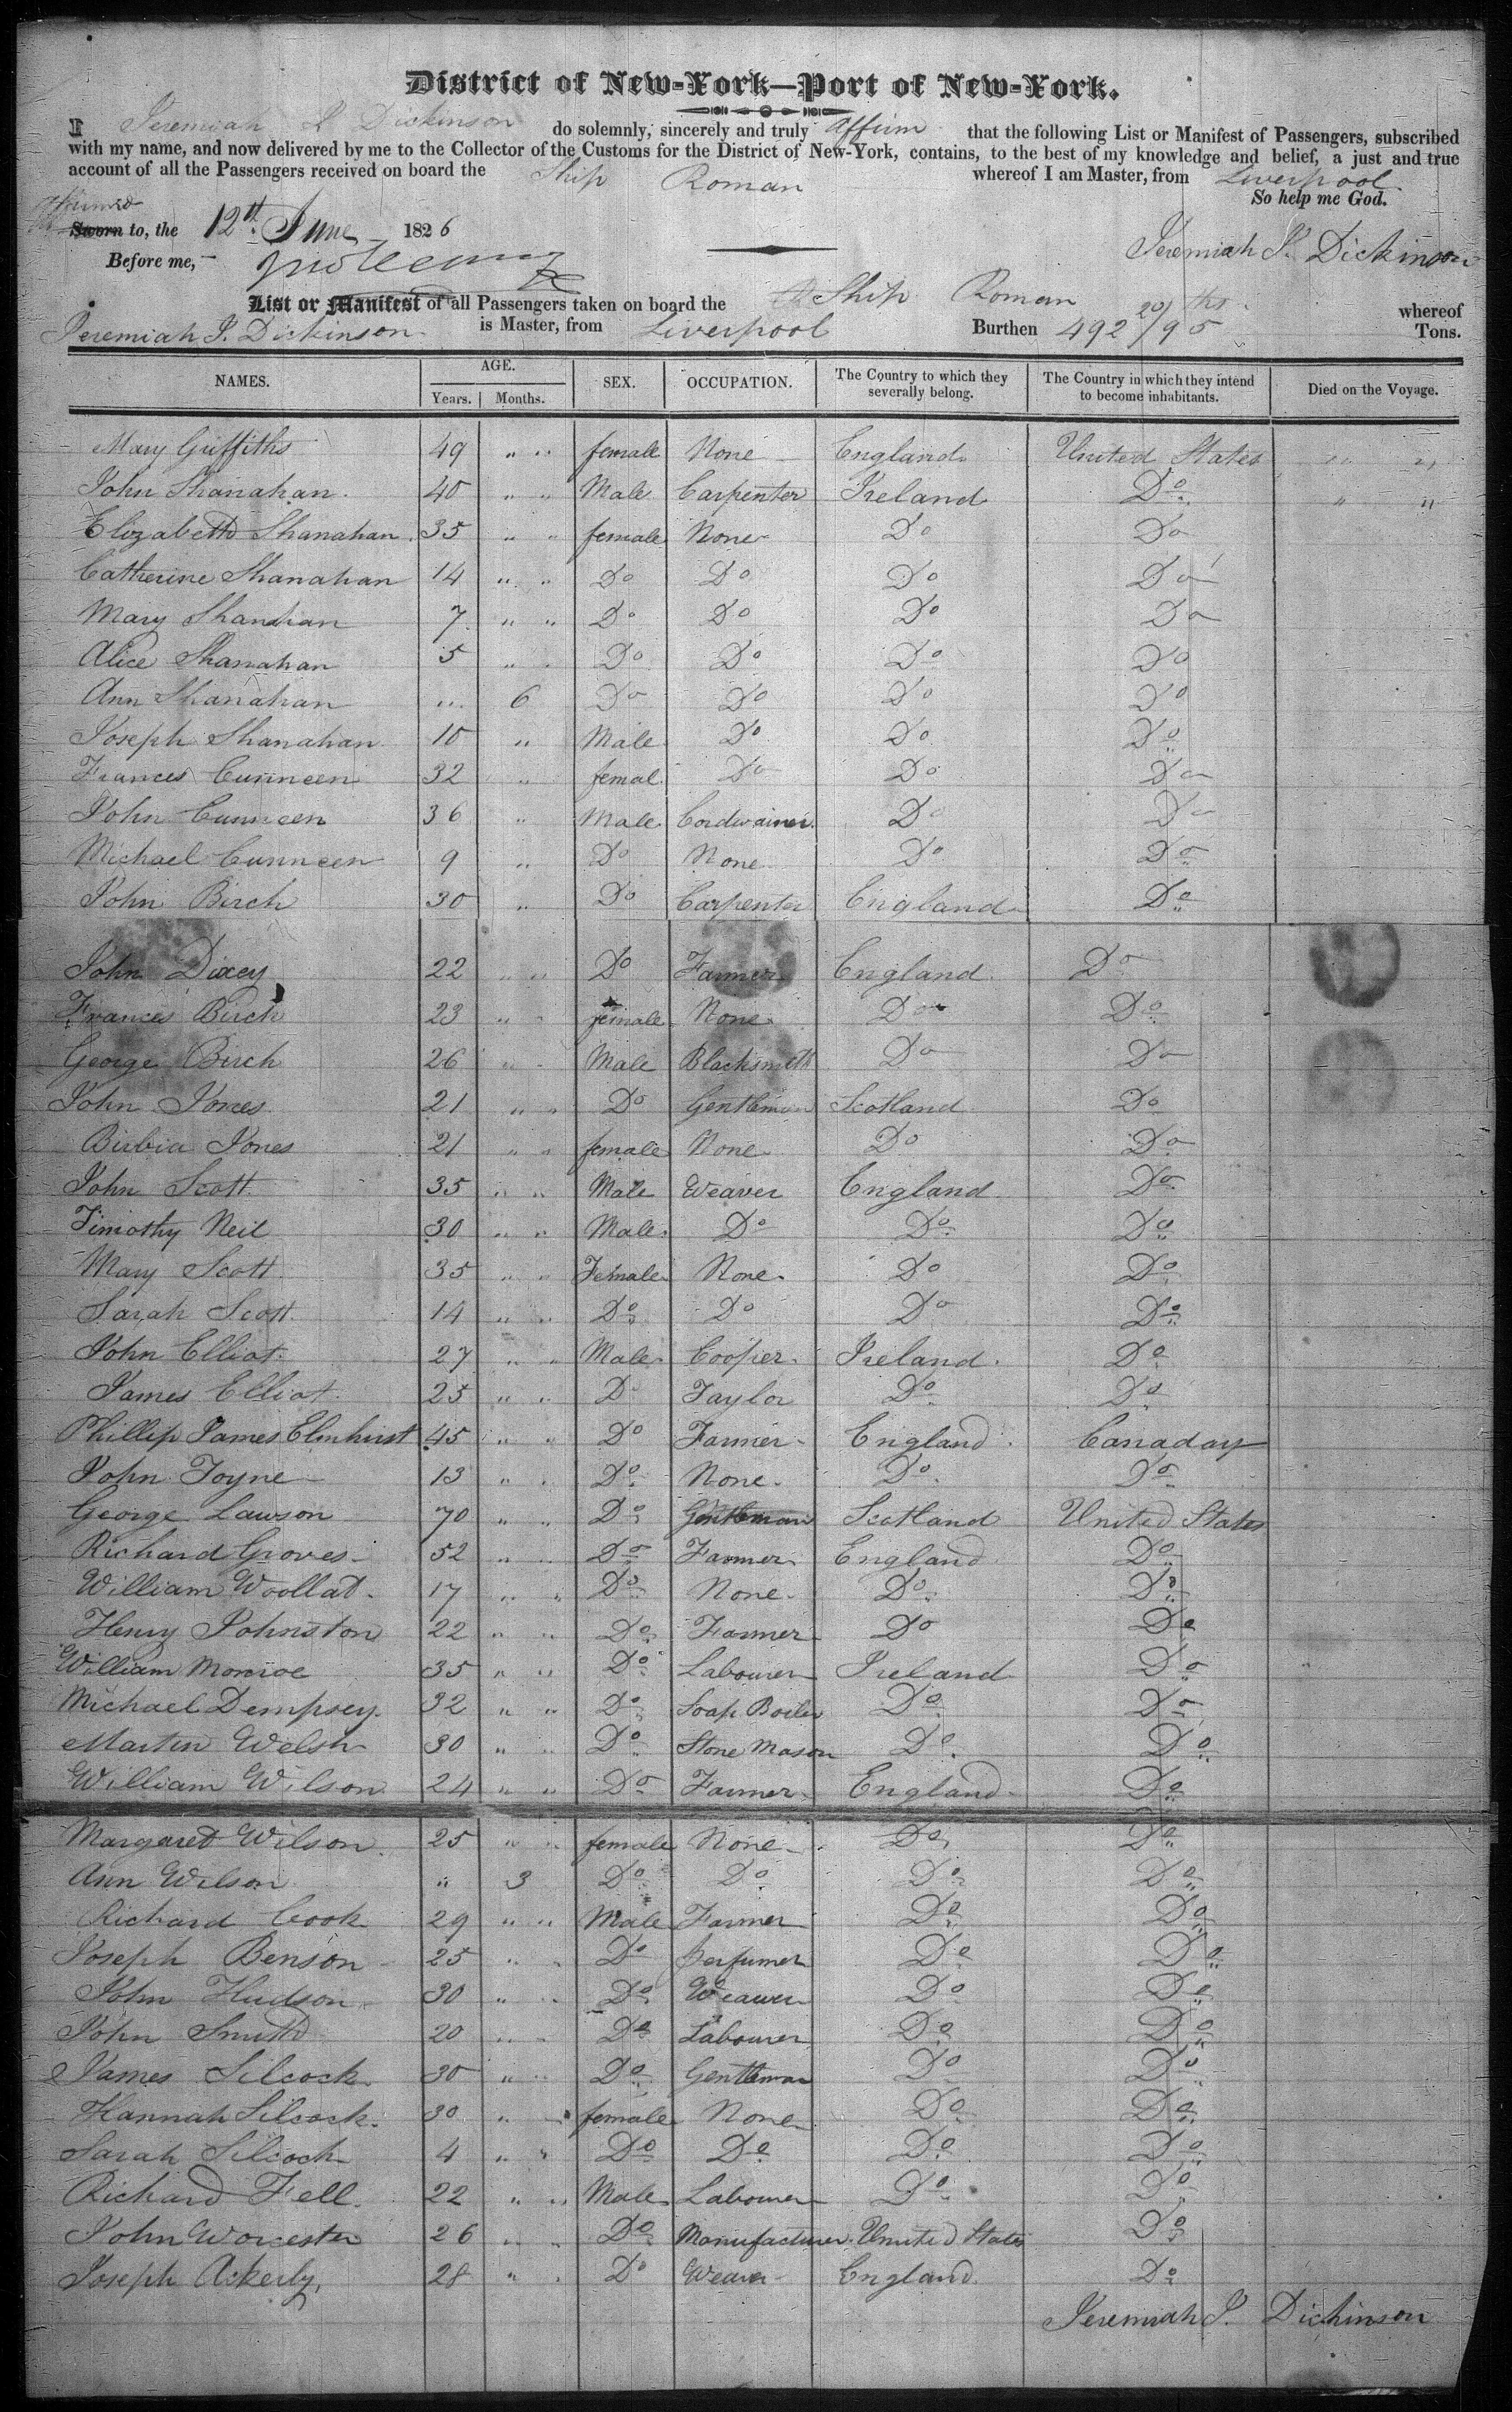 District of New-York—Port of New-York.
I Jeremiah J. Dickinson do solemnly, sincerely and truly affirm that the following List or Manifest of Passengers, subscribed
with my name, and now delivered by me to the Collector of the Customs for the District of New-York, contains, to the best of my knowledge and belief, a just and true
account of all the Passengers received on board the Ship Roman whereof I am Master, from Liverpool
So help me God.
affirmed
Sworn to, the 12th June 1826
Jeremiah J. Dickinson
Before me,
List or Manifest of all Passengers taken on board the Ship Roman whereof
Jeremiah J. Dickinson is Master, from Liverpool Burthen 492 20/95 ths Tons.
NAMES. AGE. SEX. OCCUPATION. The Country to which they severally belong. The Country in which they intend to become inhabitants. Died on the Voyage.
Years. Months.
Mary Griffiths 49 " " female None England United States " "
John Shanahan 40 " " Male Carpenter Ireland Do " "
Elizabeth Shanahan 35 " " female None Do Do
Catherine Shanahan 14 " " Do Do Do Do
Mary Shanahan 7 " " Do Do Do Do
Alice Shanahan 5 " " Do Do Do Do
Ann Shanahan " 6 Do Do Do Do
Joseph Shanahan 10 " Male Do Do Do
Frances Cunneen 32 " femal Do Do Do
John Cunneen 36 " Male Cordwainer Do Do
Michael Cunneen 9 " Do None Do Do
John Birch 30 " Do Carpenter England Do
John Dixey 22 " " Do Farmer England Do
Frances Birch 23 " " female None Do Do
George Birch 26 " " Male Blacksmith Do Do
John Jones 21 " " Do Gentleman Scotland Do
Birbia Jones 21 " " female None Do Do
John Scott 35 " " Male Weaver England Do
Timothy Neil 30 " " Male Do Do Do
Mary Scott 35 " " Female None Do Do
Sarah Scott 14 " " Do Do Do Do
John Elliot 27 " " Male Cooper Ireland Do
James Elliot 25 " " Do Taylor Do Do
Phillip James Elmhirst 45 " " Do Farmer England Canaday
John Toyne 13 " " Do None Do Do
George Lawson 70 " " Do Gentleman Scotland United States
Richard Groves 52 " " Do Farmer England Do
William Woollat 17 " " Do None Do Do
Henry Johnston 22 " " Do Farmer Do Do
William Monroe 35 " " Do Labourer Ireland Do
Michael Dempsey 32 " " Do Soap Boiler Do Do
Martin Welsh 30 " " Do Stone Mason Do Do
William Wilson 24 " " Do Farmer England Do
Margaret Wilson 25 " " female None Do Do
Ann Wilson " 3 Do Do Do Do
Richard Cook 29 " " Male Farmer Do Do
Joseph Benson 25 " " Do perfumer Do Do
John Hudson 30 " " Do Weaver Do Do
John Smith 20 " " Do Labourer Do Do
James Silcock 30 " " Do Gentleman Do Do
Hannah Silcock 30 " " female None Do Do
Sarah Silcock 4 " " Do Do Do Do
Richard Fell 22 " " Male Labourer Do Do
John Worcester 26 " " Do Manufacturer United States Do
Joseph Ackerly 28 " " Do Weaver England Do
Jeremiah J. Dickinson